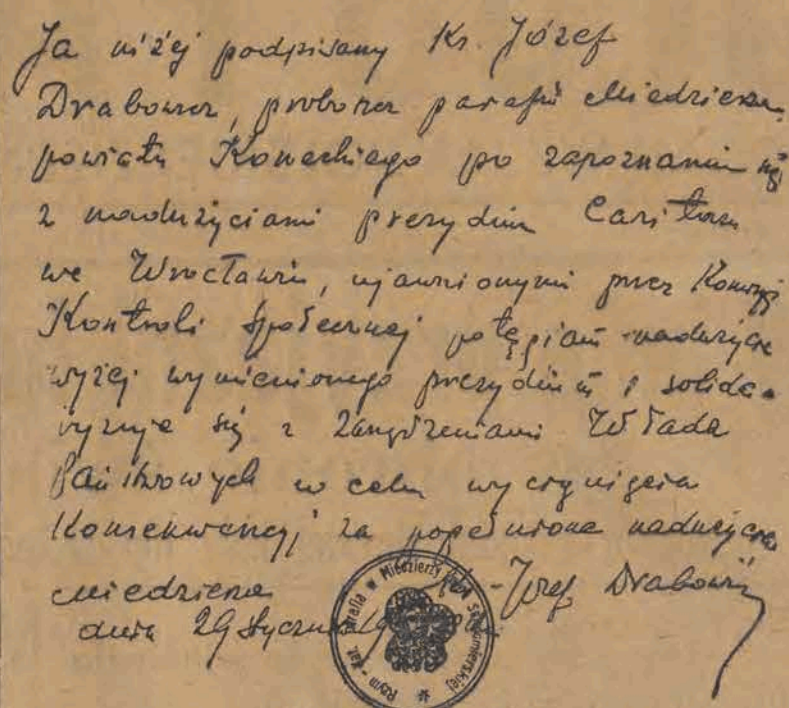 Ja niżej podpisany Ks. Józef
Drabowicz, proboszcz parafii Miedzierza
powiatu Koneckiego po zapoznaniu się
z nadużyciami prezydium Caritasu
we Wrocławiu, ujawnionymi przez Komisję
Kontroli Społecznej potępiam nadużycia
wyżej wymienionego prezydium i solida-
ryzuje się z zarządzeniami Władz
Państwowych w celu wyciągnięcia
Konsekwencji za popełnione nadużycia
Miedzierza Józef
dnia 29 stycznia
Rzym - kat. Parafia w Miedzierzy